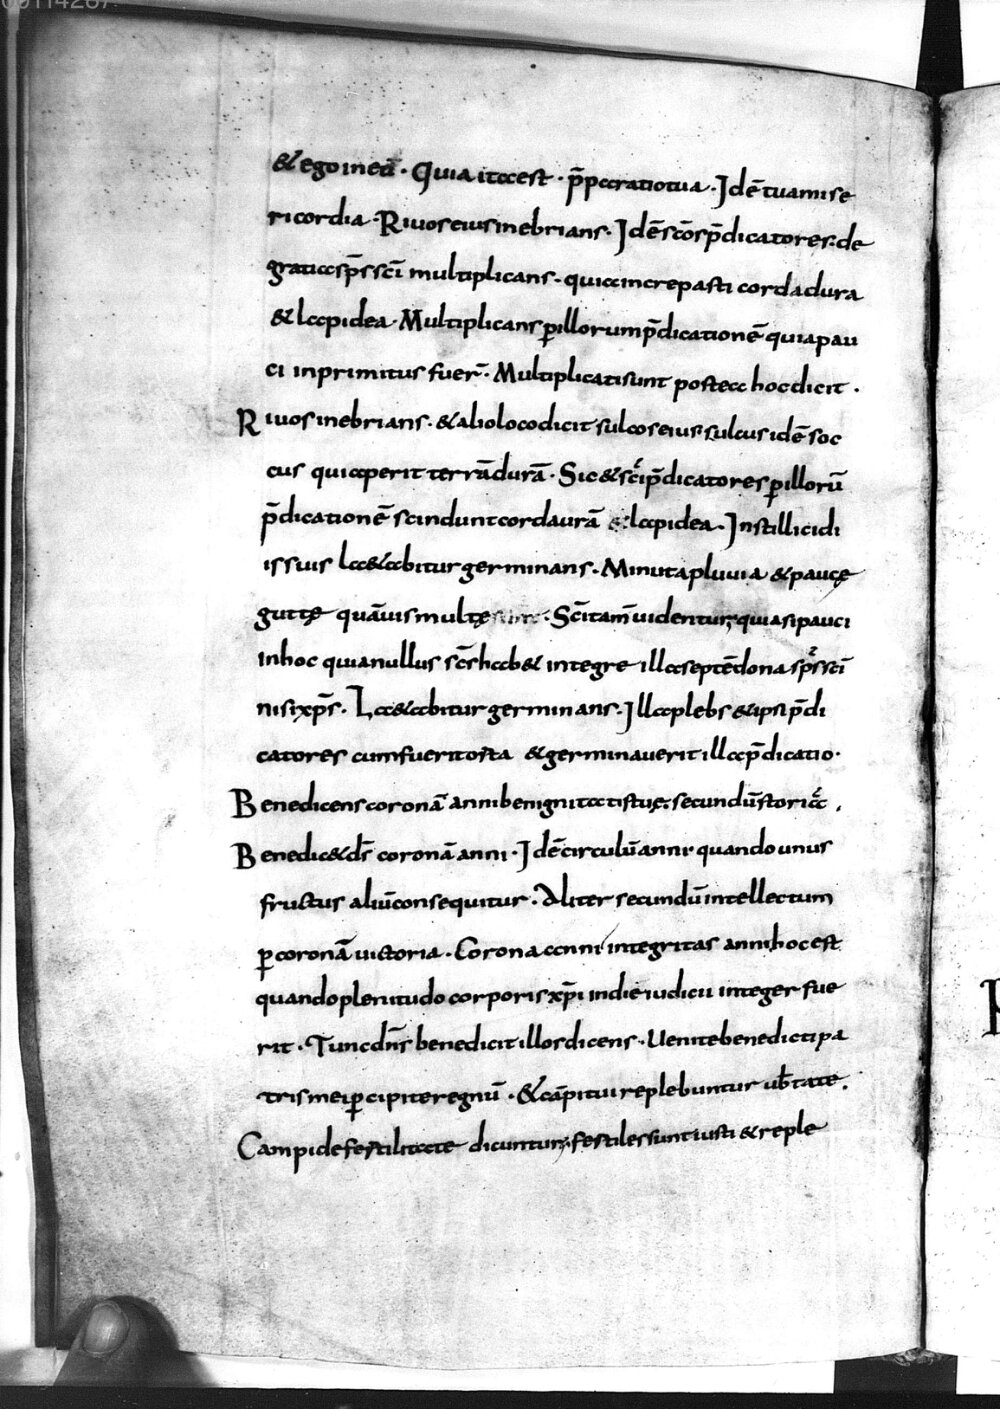 00114287
& ego in eū · Quia ita est · p̄paratio tua · Id ē tua mise
ricordia · Rivos eius inebrians · Id ē s̄cōs p̄dicatores · de
gratia sp̄s sc̄i multiplicans · quia increpasti corda dura
& lapidea · Multiplicans ꝑ illorum p̄dicationē quia pau
ci inprimitus fuer̄ · Multiplicati sunt postea hoc dicit ·
Rivos inebrians · & alio loco dicit sulcos eius sulcus id ē soc
cus qui aperit terrā durā · Sic & sc̄i p̄dicatores ꝑ illorū
p̄dicationē scindunt cor daurā & lapidea · In stillicidi
is suis la&abitur germinans · Minuta pluvia & paucę
guttę quāvis multę sunt · Sc̄i tam̄ videntur quasi pauci
in hoc quia nullus sc̄s hab& integre illa septē dona sp̄s sc̄i
nisi xp̄s · La&abitur germinans · Illa plebs & ipsi p̄di
catores cum fuerit orta & germinaverit illa p̄dicatio ·
Benedicens coronā anni benignitatis tuę · secundū storiā ·
Benedic& ds̄ coronā anni · Id ē circulū anni quando unus
fructus aliū consequitur · Aliter secundū intellectum
ꝑ coronā victoria · Corona anni integritas anni hoc est
quando plenitudo corporis xp̄i in die iudicii integer fue
rit · Tunc dn̄s benedicit illos dicens · Venite benedicti pa
tris mei ꝑcipite regnū · & cāpi tui replebuntur ub̄tate ·
Campi de fertilitate dicuntur · fertiles sunt iusti & reple